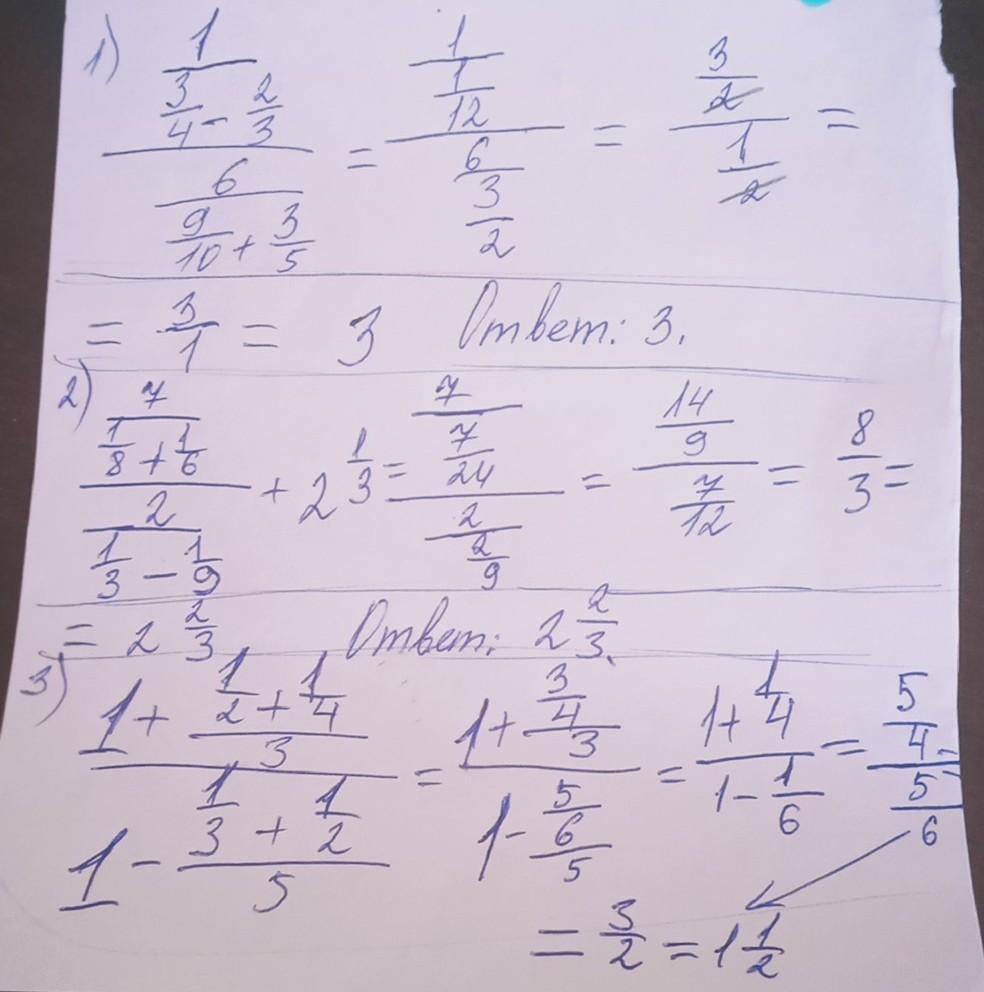 1) 1/(3/4 - 2/3) / 6/(9/10 + 3/5) = 1/(1/12) / 6/(3/2) = 3/2 / 1/2 =
= 3/1 = 3 Ответ: 3.
2) 7/(1/8 + 1/6) / 2/(1/3 - 1/9) + 2 1/3 = 7/(7/24) / 2/(2/9) = 14/9 / 7/12 = 8/3 =
= 2 2/3 Ответ: 2 2/3.
3) 1 + (1/2 + 1/4)/3 / 1 - (1/3 + 1/2)/5 = 1 + (3/4)/3 / 1 - (5/6)/5 = 1 + 1/4 / 1 - 1/6 = 5/4 / 5/6 =
= 3/2 = 1 1/2